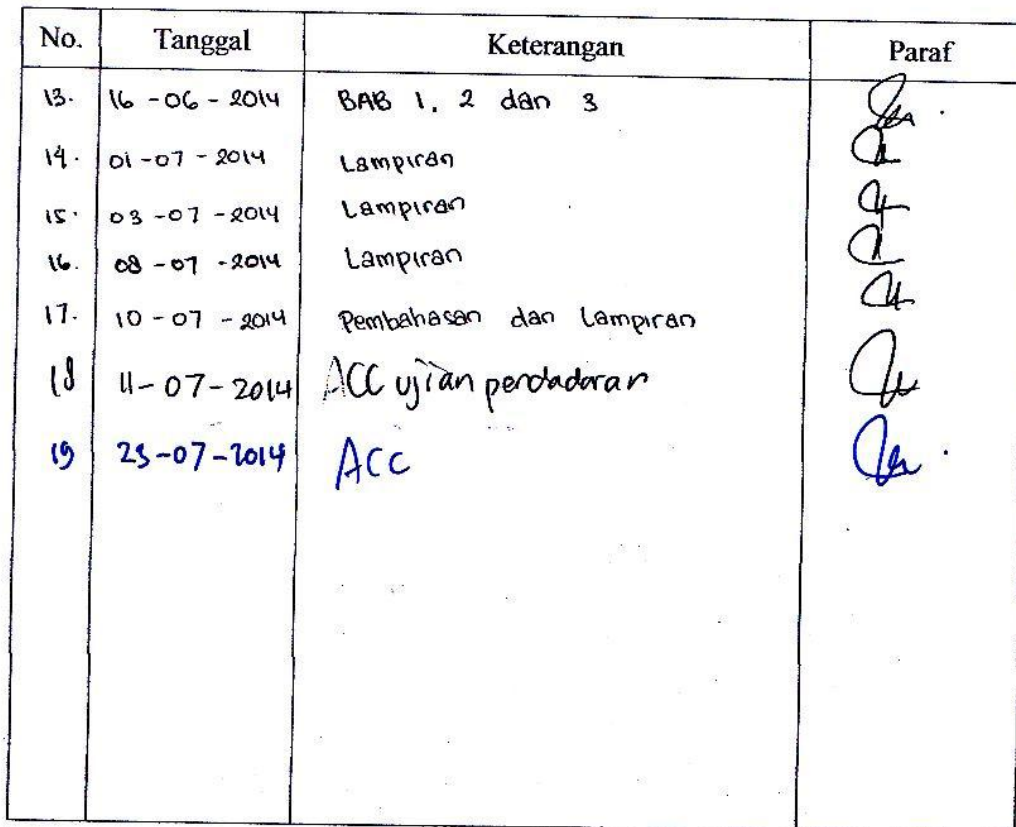 No. Tanggal Keterangan Paraf
13. 16 - 06 - 2014 BAB 1, 2 dan 3
14. 01 - 07 - 2014 Lampiran
15. 03 - 07 - 2014 Lampiran
16. 08 - 07 - 2014 Lampiran
17. 10 - 07 - 2014 Pembahasan dan Lampiran
18 11 - 07 - 2014 ACC ujian pendadaran
19 23 - 07 - 2014 ACC